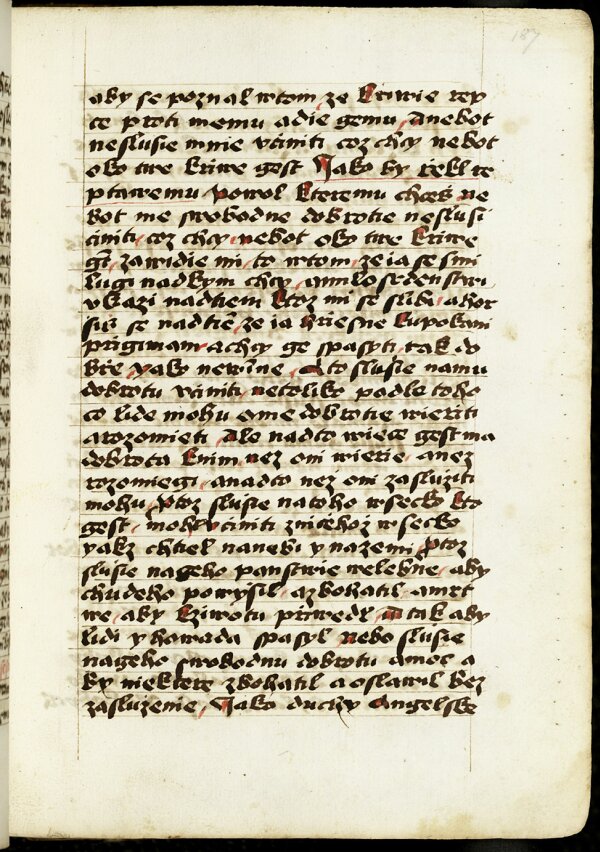 187
aby se poznal wtom ze krziwie rep
ce proti memu a die gemu, Anebot
neslusie mnie vciniti coz chcy nebot
oko twe krziwe gest Jako by rzekl re
ptawemu Powol kteremu chces ne
bot me swobodne dobrotie neslusi
ciniti, coz chcy, nebot oko twe kriwe
gt, zawidie mi, to wtom, ze ia se smi
lugi nad kym chcy, a milosrdenstwi
vkazi nad tiem ktoz mi se slibi, a hor
sis se nad tie, ze ia hriesne kupokani
prigimam, a chcy ge spasyti, tak do
brze yako newine, A to slusie na mu
dobrotu vciniti, netoliko podle toho
co lide mohu o me dobrotie wierziti
a rozomieti, Ale nad to wiece gest ma
dobrota knim, nez oni wierie, a nez
rozomiegi, a nad to nez oni zasluziti
mohu, Ptoz slusie na toho wsecko kto
gest, mohl vciniti z niceho z wsecko
yakz chtiel na nebi y na zemi Ptoz
slusie na geho panstwie welebne, aby
chudeho powysil, a zbohatil, a mrt
we, aby k ziwotu prziwedl, A tak aby
lidi y howada spasyl, Nebo slusie
na geho swobodnu dobrotu a moc a
by niektere zbohatil a oslawil bez
zasluzenie, Jako duchy Angelske